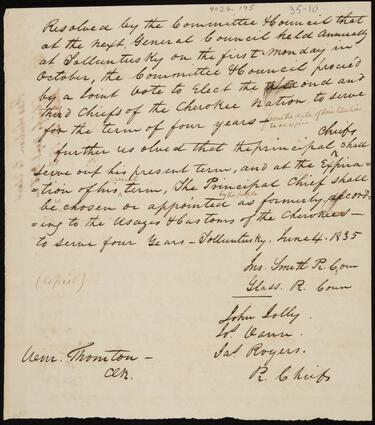 4026.195
35-10.
Resolved by the Committee & Council that
at the next General Council held Annually
at Tolluntusky on the first Monday in
October, the Committee & Council proceed
by a Joint Vote to Elect the second and
third Chiefs of the Cherokee Nation, to serve
for the term of four years—
Chiefs
further resolved that the principal shall
serve out his present term, and at the Expira-
tion of his term, The Principal Chief shall
be chosen or appointed as formerly, accord-
ing to the Usages & Customs of the Cherokees—
to serve four Years — Tolluntusky. June 4. 1835
(copied)
Jno. Smith Pr. Com
Glass. P. Coun
John Jolly
Jos. Vann
Jas Rogers.
P. Chiefs
Wm. Thornton—
Clk.